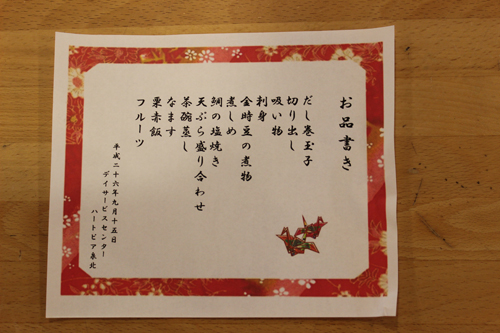 お品書き
だし巻玉子
切り出し
吸い物
刺身
金時豆の煮物
煮しめ
鯛の塩焼き
天ぷら盛り合わせ
茶碗蒸し
なます
栗赤飯
フルーツ
平成二十六年九月十五日
デイサービスセンター
ハートピア泉北